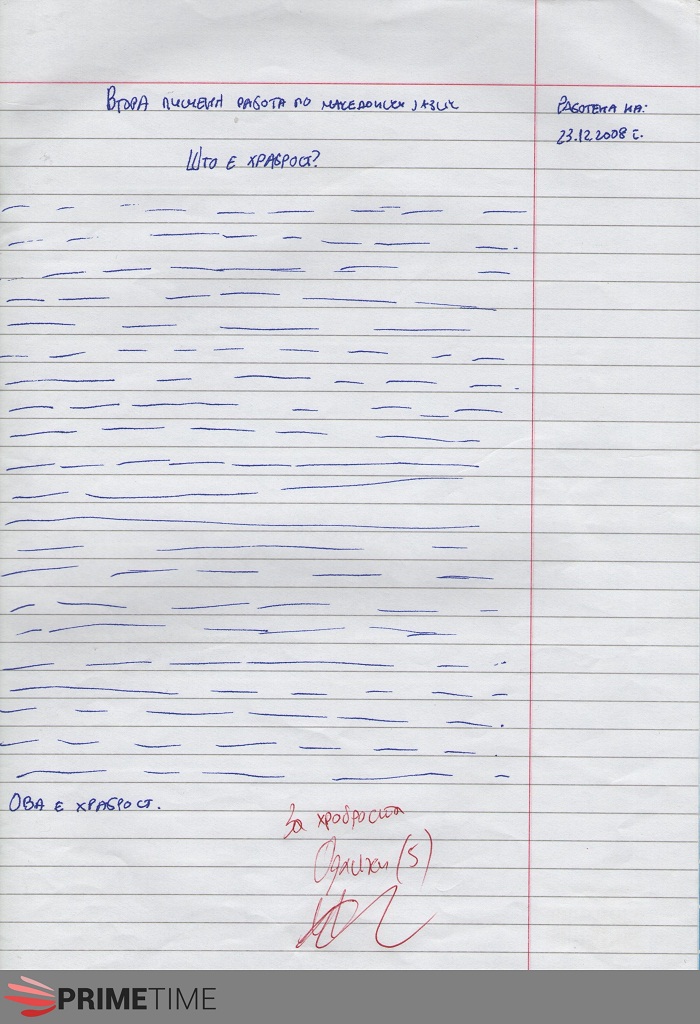 Втора писмена работа по македонски јазик
Работена на:
23.12.2008 г.
Што е храброст?
Ова е храброст.
За храброста
Одличен (5)
PRIMETIME